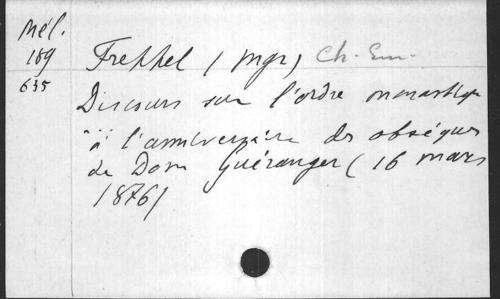 Mél.
189
635
Freppel (Mgr) Ch. Em.
Discours sur l'ordre monastique
à l'anniversaire des obsèques
de Dom Guéranger (16 mars
1876)